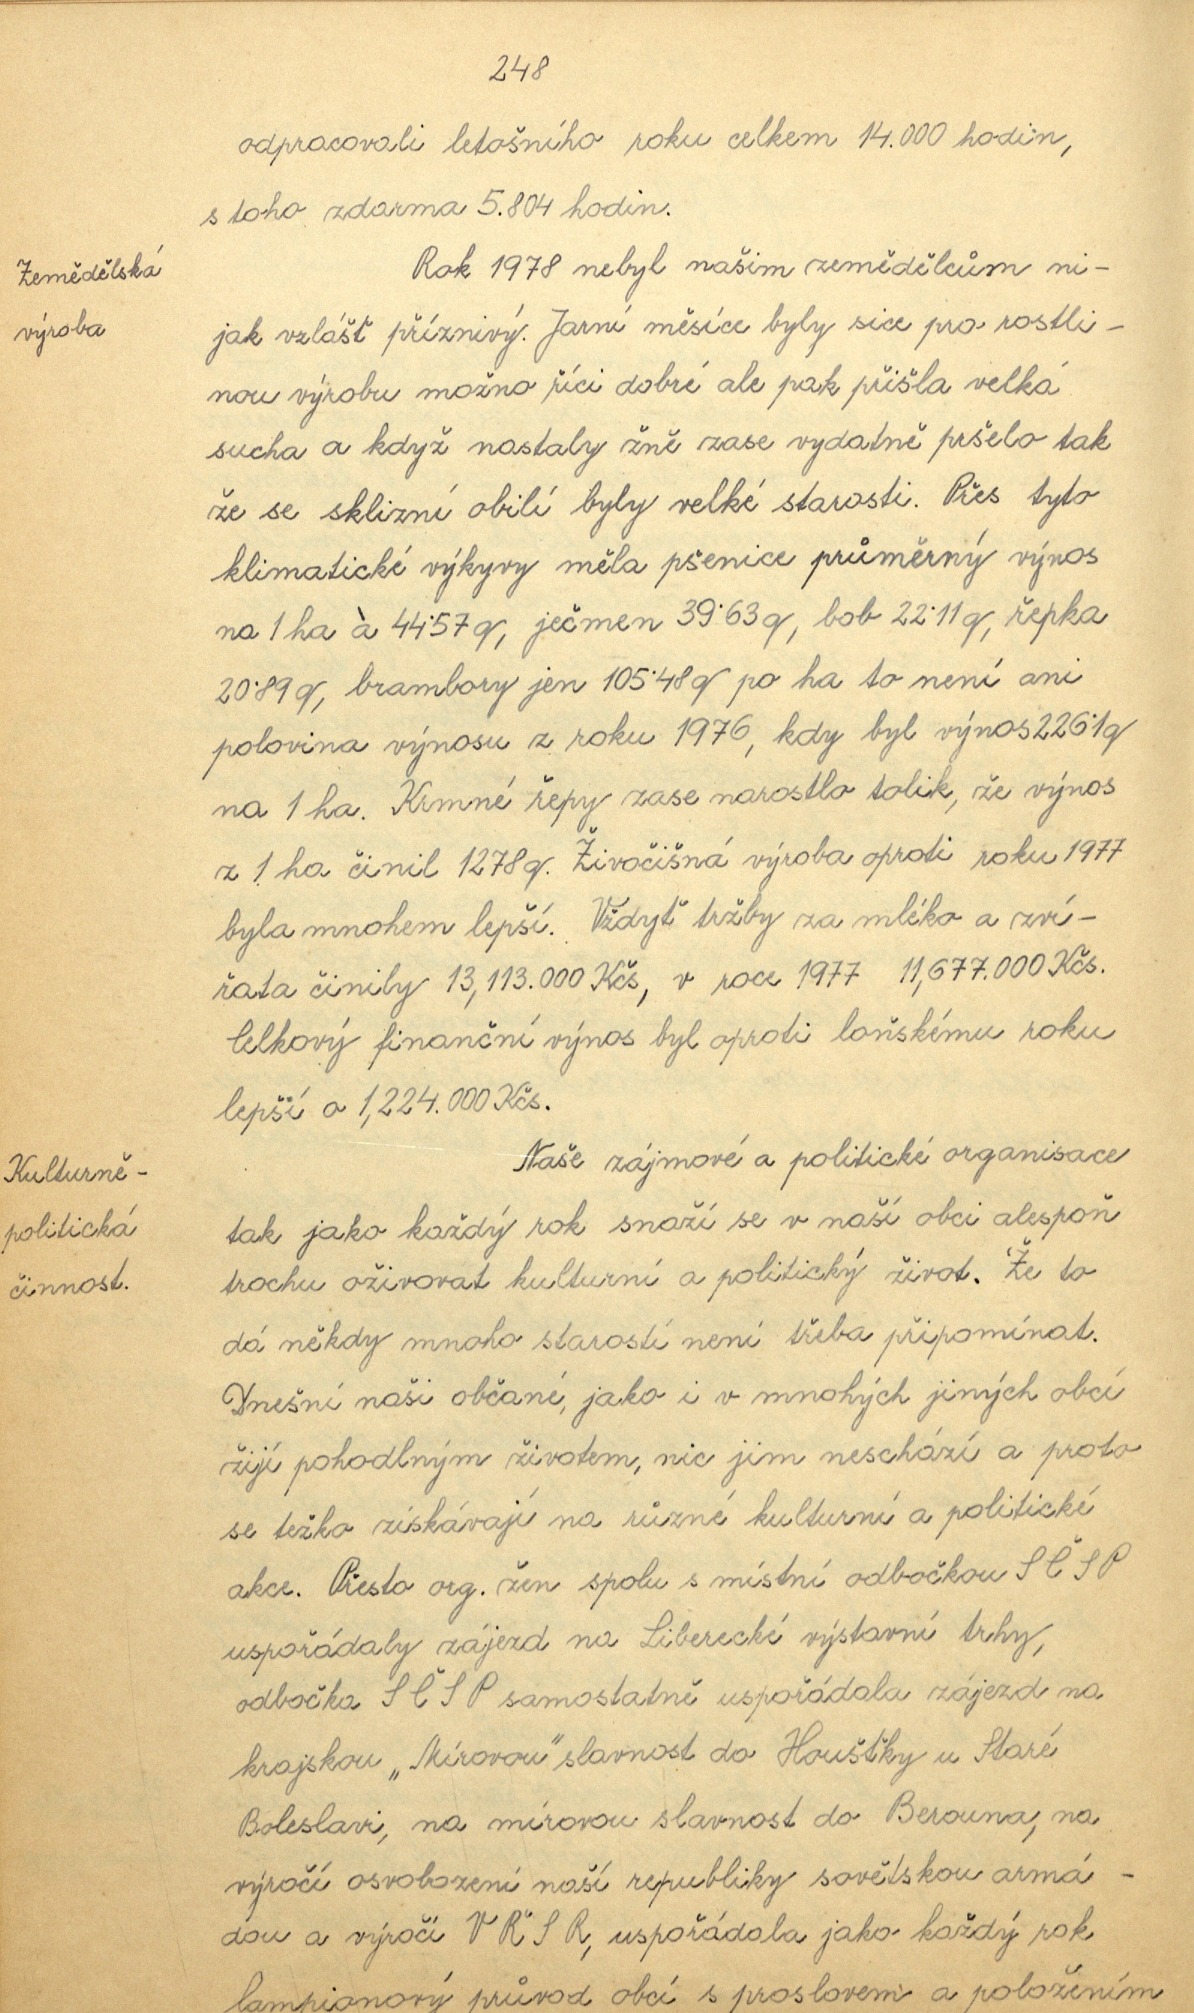 248
odpracovali letošního roku celkem 14.000 hodin,
s toho zdarma 5.804 hodin.
Zemědělská
výroba
Rok 1978 nebyl našim zemědělcům ni-
jak vzlášť příznivý. Jarní měsíce byly sice pro rostli-
nou výrobu možno říci dobré ale pak přišla velká
sucha a když nastaly žně zase vydatně pršelo tak
že se sklizní obilí byly velké starosti. Přes tyto
klimatické výkyvy měla pšenice průměrný výnos
na 1 ha à 44·57 q, ječmen 39·63 q, bob 22·11 q, řepka
20·89 q, brambory jen 105·48 q po ha to není ani
polovina výnosu z roku 1976, kdy byl výnos 226·1 q
na 1 ha. Krmné řepy zase narostlo tolik, že výnos
z 1 ha činil 1278 q. Živočišná výroba oproti roku 1977
byla mnohem lepší. Vždyť tržby za mléko a zví-
řata činily 13,113.000 Kčs, v roce 1977 11,677.000 Kčs.
Celkový finanční výnos byl oproti loňskému roku
lepší o 1,224.000 Kčs.
Kulturně-
politická
činnost.
Naše zájmové a politické organisace
tak jako každý rok snaží se v naší obci alespoň
trochu oživovat kulturní a politický život. Že to
dá někdy mnoho starostí není třeba připomínat.
Dnešní naši občané, jako i v mnohých jiných obcí
žijí pohodlným životem, nic jim neschází a proto
se težko získávají na různé kulturní a politické
akce. Přesto org. žen spolu s místní odbočkou SČSP
uspořádaly zájezd na Liberecké výstavní trhy,
odbočka SČSP samostatně uspořádala zájezd na
krajskou „Mírovou" slavnost do Houštky u Staré
Boleslavi, na mírovou slavnost do Berouna, na
výročí osvobození naší republiky sovětskou armá-
dou a výročí VŘSR, uspořádala jako každý rok
lampionový průvod obcí s proslovem a položením